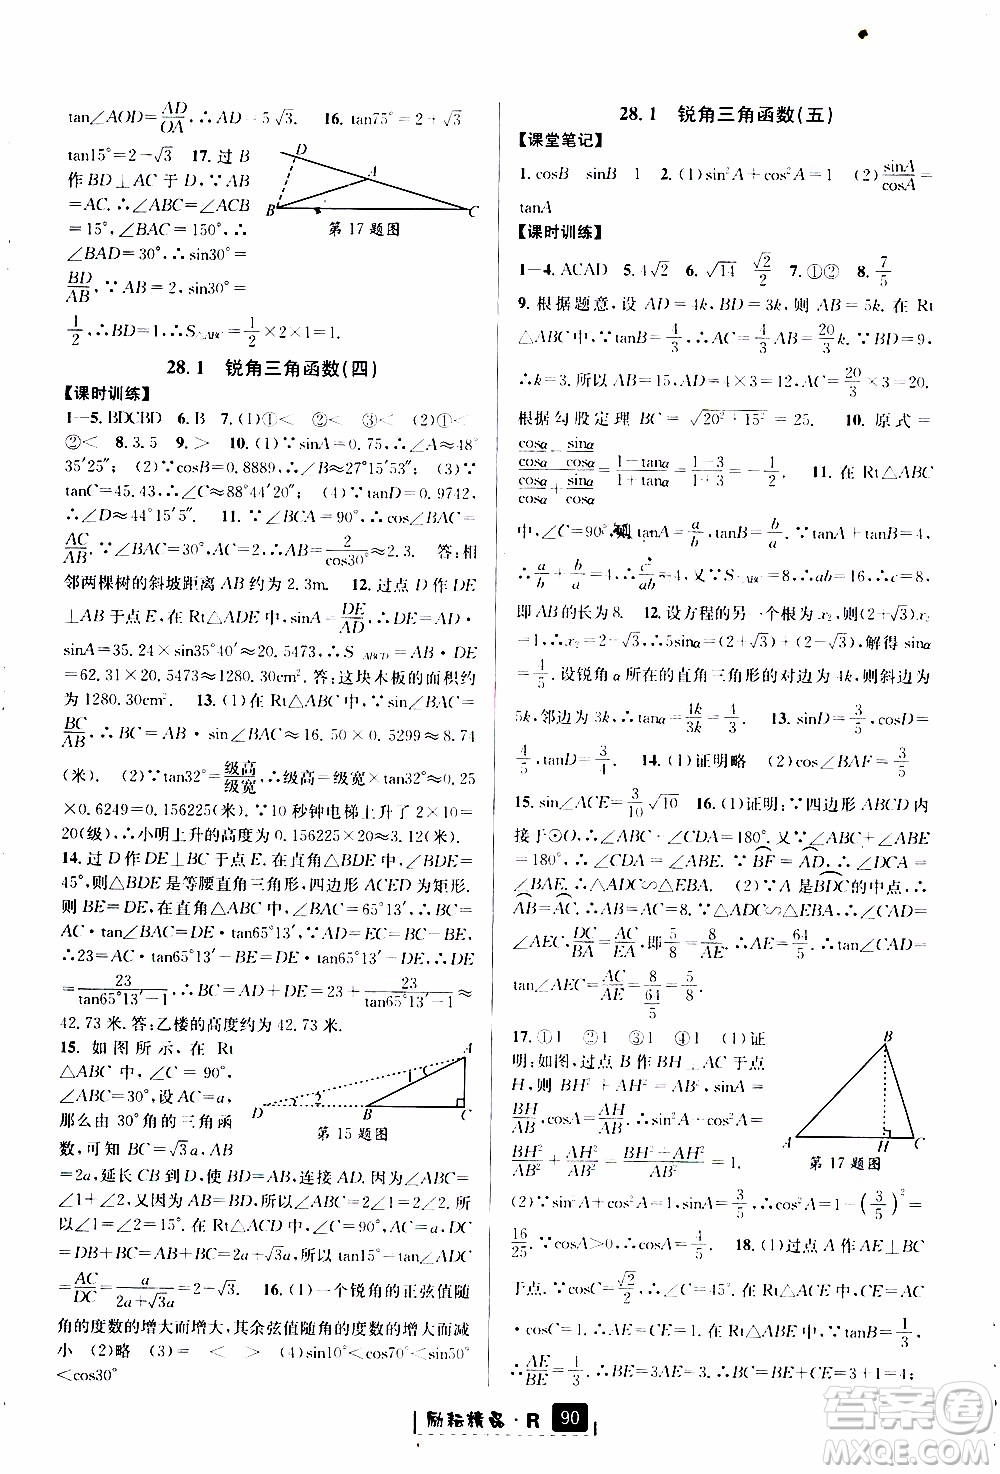 tan∠AOD=AD/OA,∴AD=5√3. 16. tan75°=2+√3
tan15°=2-√3 17. 过 B
作 BD⊥AC 于 D,∵AB
=AC.∴∠ABC=∠ACB
=15°,∠BAC=150°,∴
∠BAD=30°,∴sin30°=
BD/AB=
1/2,∴BD=1.∴S△ABC=1/2×2×1=1.
B
D
A
C
第17题图
28.1 锐角三角函数(四)
【课时训练】
1—5. BDCBD 6. B 7. (1)①< ②< ③< (2)①<
②< 8. 3.5 9. > 10. (1)∵sinA=0.75,∴∠A≈48°
35′25″. (2)∵cosB=0.8889,∴∠B≈27°15′57″. (3)∵
tanC=45.43,∴∠C≈88°44′20″. (4)∵tanD=0.9742,
∴∠D≈44°15′5″. 11. ∵∠BCA=90°,∴cos∠BAC=
AC/AB.∵∠BAC=30°,∴AB=2/cos30°≈2.3. 答:相
邻两棵树的斜坡距离 AB 约为 2.3m. 12. 过点 D 作 DE
⊥AB 于点 E,在 Rt△ADE 中,sinA=DE/AD,∴DE=AD·
sinA=35.24×sin35°40′≈20.5473,∴S▱ABCD=AB·DE
=62.31×20.5473≈1280.30cm². 答:这块木板的面积约
为1280.30cm². 13. (1)在 Rt△ABC 中,∵sin∠BAC=
BC/AB,∴BC=AB·sin∠BAC=16.50×0.5299≈8.74
(米). (2)∵tan32°=级高/级宽,∴级高=级宽×tan32°≈0.25
×0.6249=0.156225(米).∵10 秒钟电梯上升了 2×10=
20(级),∴小明上升的高度为0.156225×20=3.1245(米).
14. 过 D 作DE⊥BC 于点 E. 在直角△BDE 中,∠BDE=
45°,则△BDE 是等腰直角三角形,四边形 ACED 为矩形.
则 BE=DE,在直角△ABC 中,∠BAC=65°13′,则 BC=
AC·tan∠BAC=AC·tan65°13′,∵AD=EC=BC-BE,
∴23=AC·tan65°13′-AC=DE·tan65°13′-DE,∴DE
=23/(tan65°13′-1),∴BC=AD+DE=23+23/(tan65°13′-1)≈
42.73 米. 答:乙楼的高度约为 42.73 米.
15. 如图所示,在 Rt
△ABC 中,∠C=90°,
∠ABC=30°,设AC=a,
那么由 30°角的三角函
数,可知 BC=√3a,AB
D
B
C
A
1
第15题图
=2a,延长 CB 到 D,使 BD=AB,连接 AD,则∠ABC=
∠1+∠D=30°. 又因为 AB=BD,所以∠ABC=2∠1=2∠D.所
以∠D=15°. 在 Rt△ACD 中,∠C=90°,AC=a,DC
=DB+BC=AB+BC=2a+√3a,所以 tan15°=tan∠ADC=
AC/DC=a/(2a+√3a)=2-√3. 16. (1)一个锐角的正弦值随
角的度数的增大而增大,其余弦值随角的度数的增大而减
小 (2)略 (3)= < > (4)sin10°<cos70°<sin50°
<cos30°
28.1 锐角三角函数(五)
【课堂笔记】
1. cosB sinB 1 2. (1)sin²A+cos²A=1 (2)sinA/cosA=
tanA
【课时训练】
1—4. ACAD 5. 4√2 6. √14 √2/2 7. ①② 8. 7/5
9. 根据题意,设 AD=4k,BD=3k,则 AB=5k. 在 Rt
△ABC 中,∵tanB=4/3,∴AC=4/3AB=20/3k.∵BD=9,
∴k=3. 所以 AB=15,AC=20/3×3=20. 在Rt△ABC 中,
根据勾股定理 BC=√(20²+15²)=25. 10. 原式=
(cosα/cosα-sinα/cosα)/(cosα/cosα+sinα/cosα)=(1-tanα)/(1+tanα)=(1-3)/(1+3)=-1/2. 11. 在 Rt△ABC
中,∠C=90°,则 tanA=a/b,tanB=b/a.∵tanA+tanB=4,
∴a/b+b/a=4.∴(a²+b²)/ab=4,又∵S△ABC=8,∴ab=16,∴c=8,
即 AB 的长为 8. 12. 设方程的另一个根为 x₂,则(2+√3)x₂
=1,∴x₂=2-√3,∴5sinα=(2+√3)+(2-√3),解得sinα
=4/5. 设锐角 α 所在的直角三角形的对边为 4k,则斜边为
5k,邻边为 3k,∴tanα=4k/3k=4/3. 13. sinD=3/5,cosD=
4/5,tanD=3/4 14. (1)证明略 (2)cos∠BAF=4/5
15. sin∠ACE=3/10√10 16. (1)证明:∵四边形 ABCD 内
接于⊙O,∴∠CDA+∠ABC=180°.又∵∠ABE+∠ABC
=180°,∴∠CDA=∠ABE.∵BF=AD,∴∠DCA=
∠BAE.∴△ADC∽△EBA. (2)∵A 是BDC的中点,∴
AB=AC,∴AB=AC=8.∵△ADC∽△EBA,∴∠CAD=
∠AEC,DC/BA=AC/AE,即5/8=8/AE,∴AE=64/5,∴tan∠CAD=
tan∠AEC=AC/AE=8/(64/5)=5/8.
17. ①1 ②1 ③1 ④1 (1)证
明:如图,过点 B 作 BH⊥AC于点
H,则 BH²+AH²=AB²,sinA=
BH/AB,cosA=AH/AB,∴sin²A+cos²A=
BH²/AB²+AH²/AB²=(BH²+AH²)/AB²=1.
A
B
H
C
第17题图
(2)∵sin²A+cos²A=1,sinA=3/5,∴cos²A=1-(3/5)²=
16/25.∵cosA>0,∴cosA=4/5. 18. (1)过点 A 作AE⊥BC
于点 E.∵cosC=√2/2,∴∠C=45°. 在 Rt△ACE 中,CE=
AC·cosC=1,∴AE=CE=1. 在 Rt△ABE 中,tanB=1/3,
∴AE/BE=1/3.∴BE=3AE=3,∴BC=BE+CE=4
励耘精品·R 90
答案圈
MXQE.COM